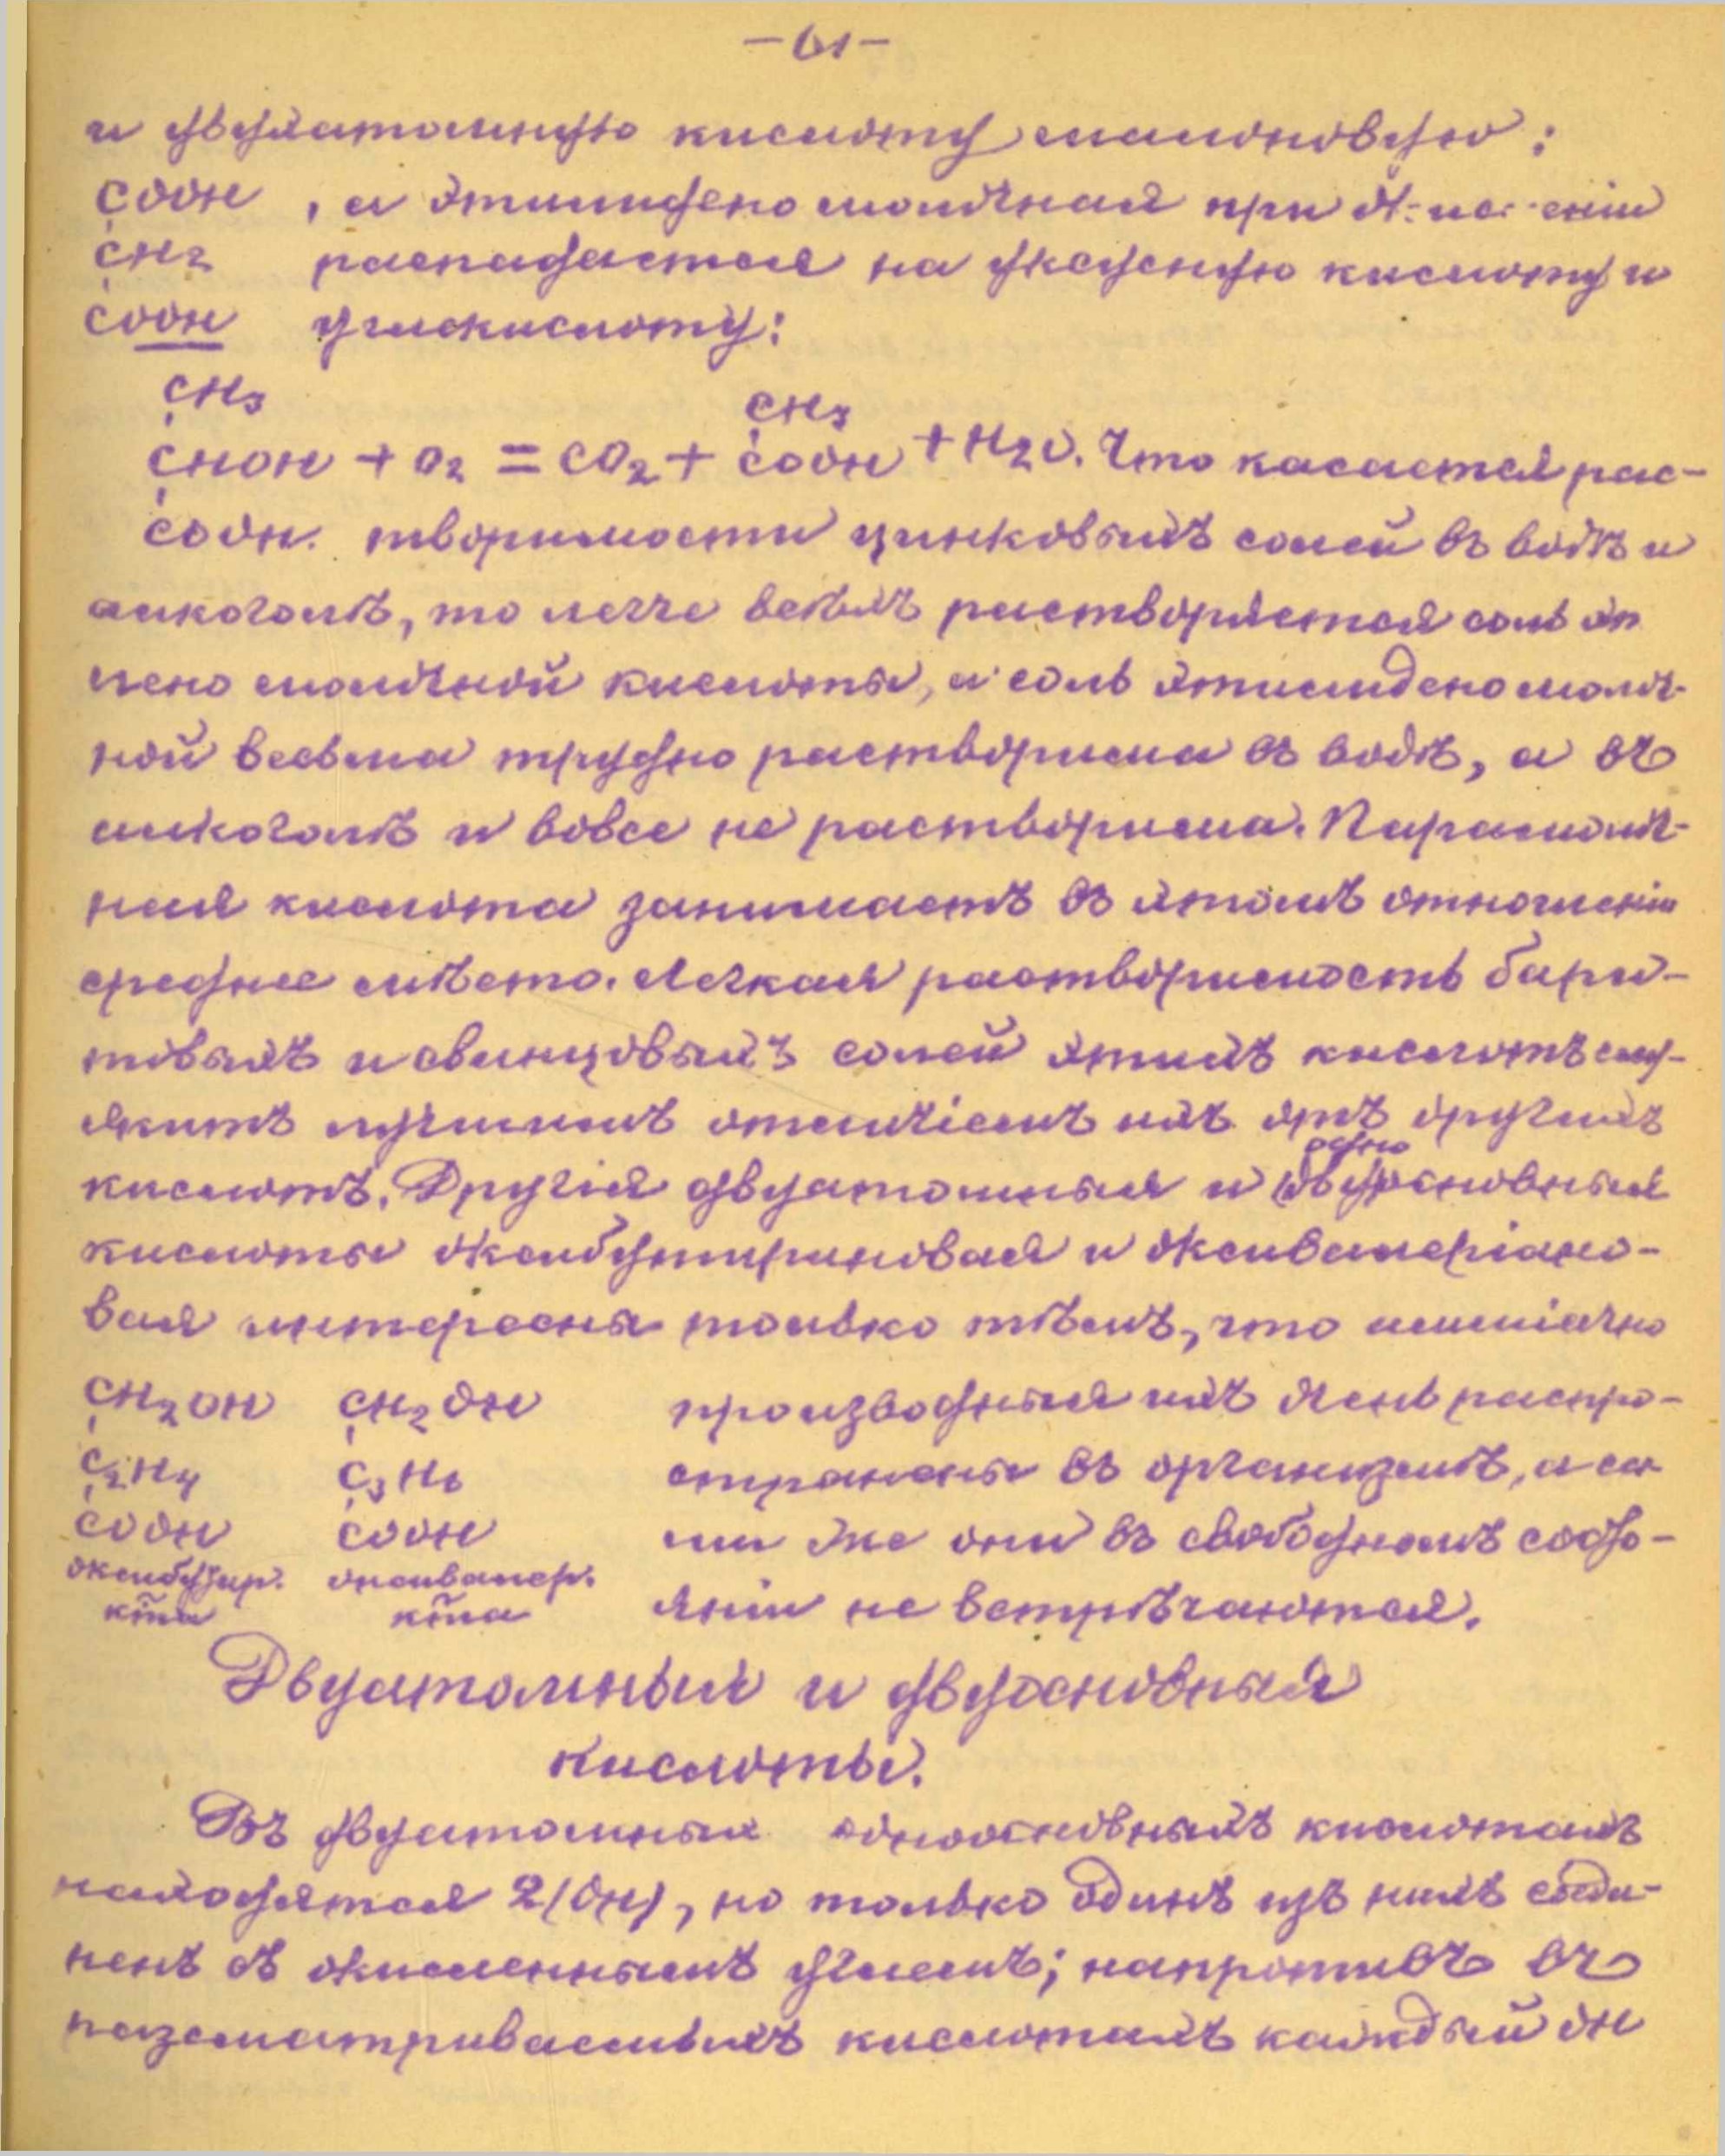 -61-
и двуатомную кислоту малоновую:
COOH , а этилидено молочная при
CH2 распадается на уксусную кислоту и
COOH углекислоту:
CH3 CH3
CHOH + O2 = CO2 + COOH + H2O. Что касается рас-
COOH. творимости цинковыхъ солей въ водѣ и
алкоголѣ, то легче всѣхъ растворяется соль эти
лено молочной кислоты, а соль этилидено молоч-
ной весьма трудно растворима въ водѣ, а въ
алкоголѣ и вовсе не растворима. Парамолоч-
ная кислота занимаетъ въ этомъ отношеніи
среднее мѣсто. Легкая растворимость бари-
товыхъ и свинцовыхъ солей этихъ кислотъ слу-
житъ лучшимъ отличіемъ ихъ отъ другихъ
одно
кислотъ. Другія двуатомныя и двуосновныя
кислоты оксибутириновая и оксивалеріано-
вая интересны только тѣмъ, что амміачно
CH2OH CH2OH производныя ихъ очень распро-
C2H4 C3H6 странены въ организмѣ, а са
COOH COOH ми же они въ свободномъ состо-
оксибутир. оксивалер.
к̃та к̃та яніи не встрѣчаются.
Двуатомныя и двуосновныя
кислоты.
Въ двуатомныхъ одноосновныхъ кислотахъ
находятся 2(OH), но только одинъ изъ нихъ соеди-
ненъ съ окисленнымъ углемъ; напротивъ въ
разсматриваемыхъ кислотахъ каждый OH